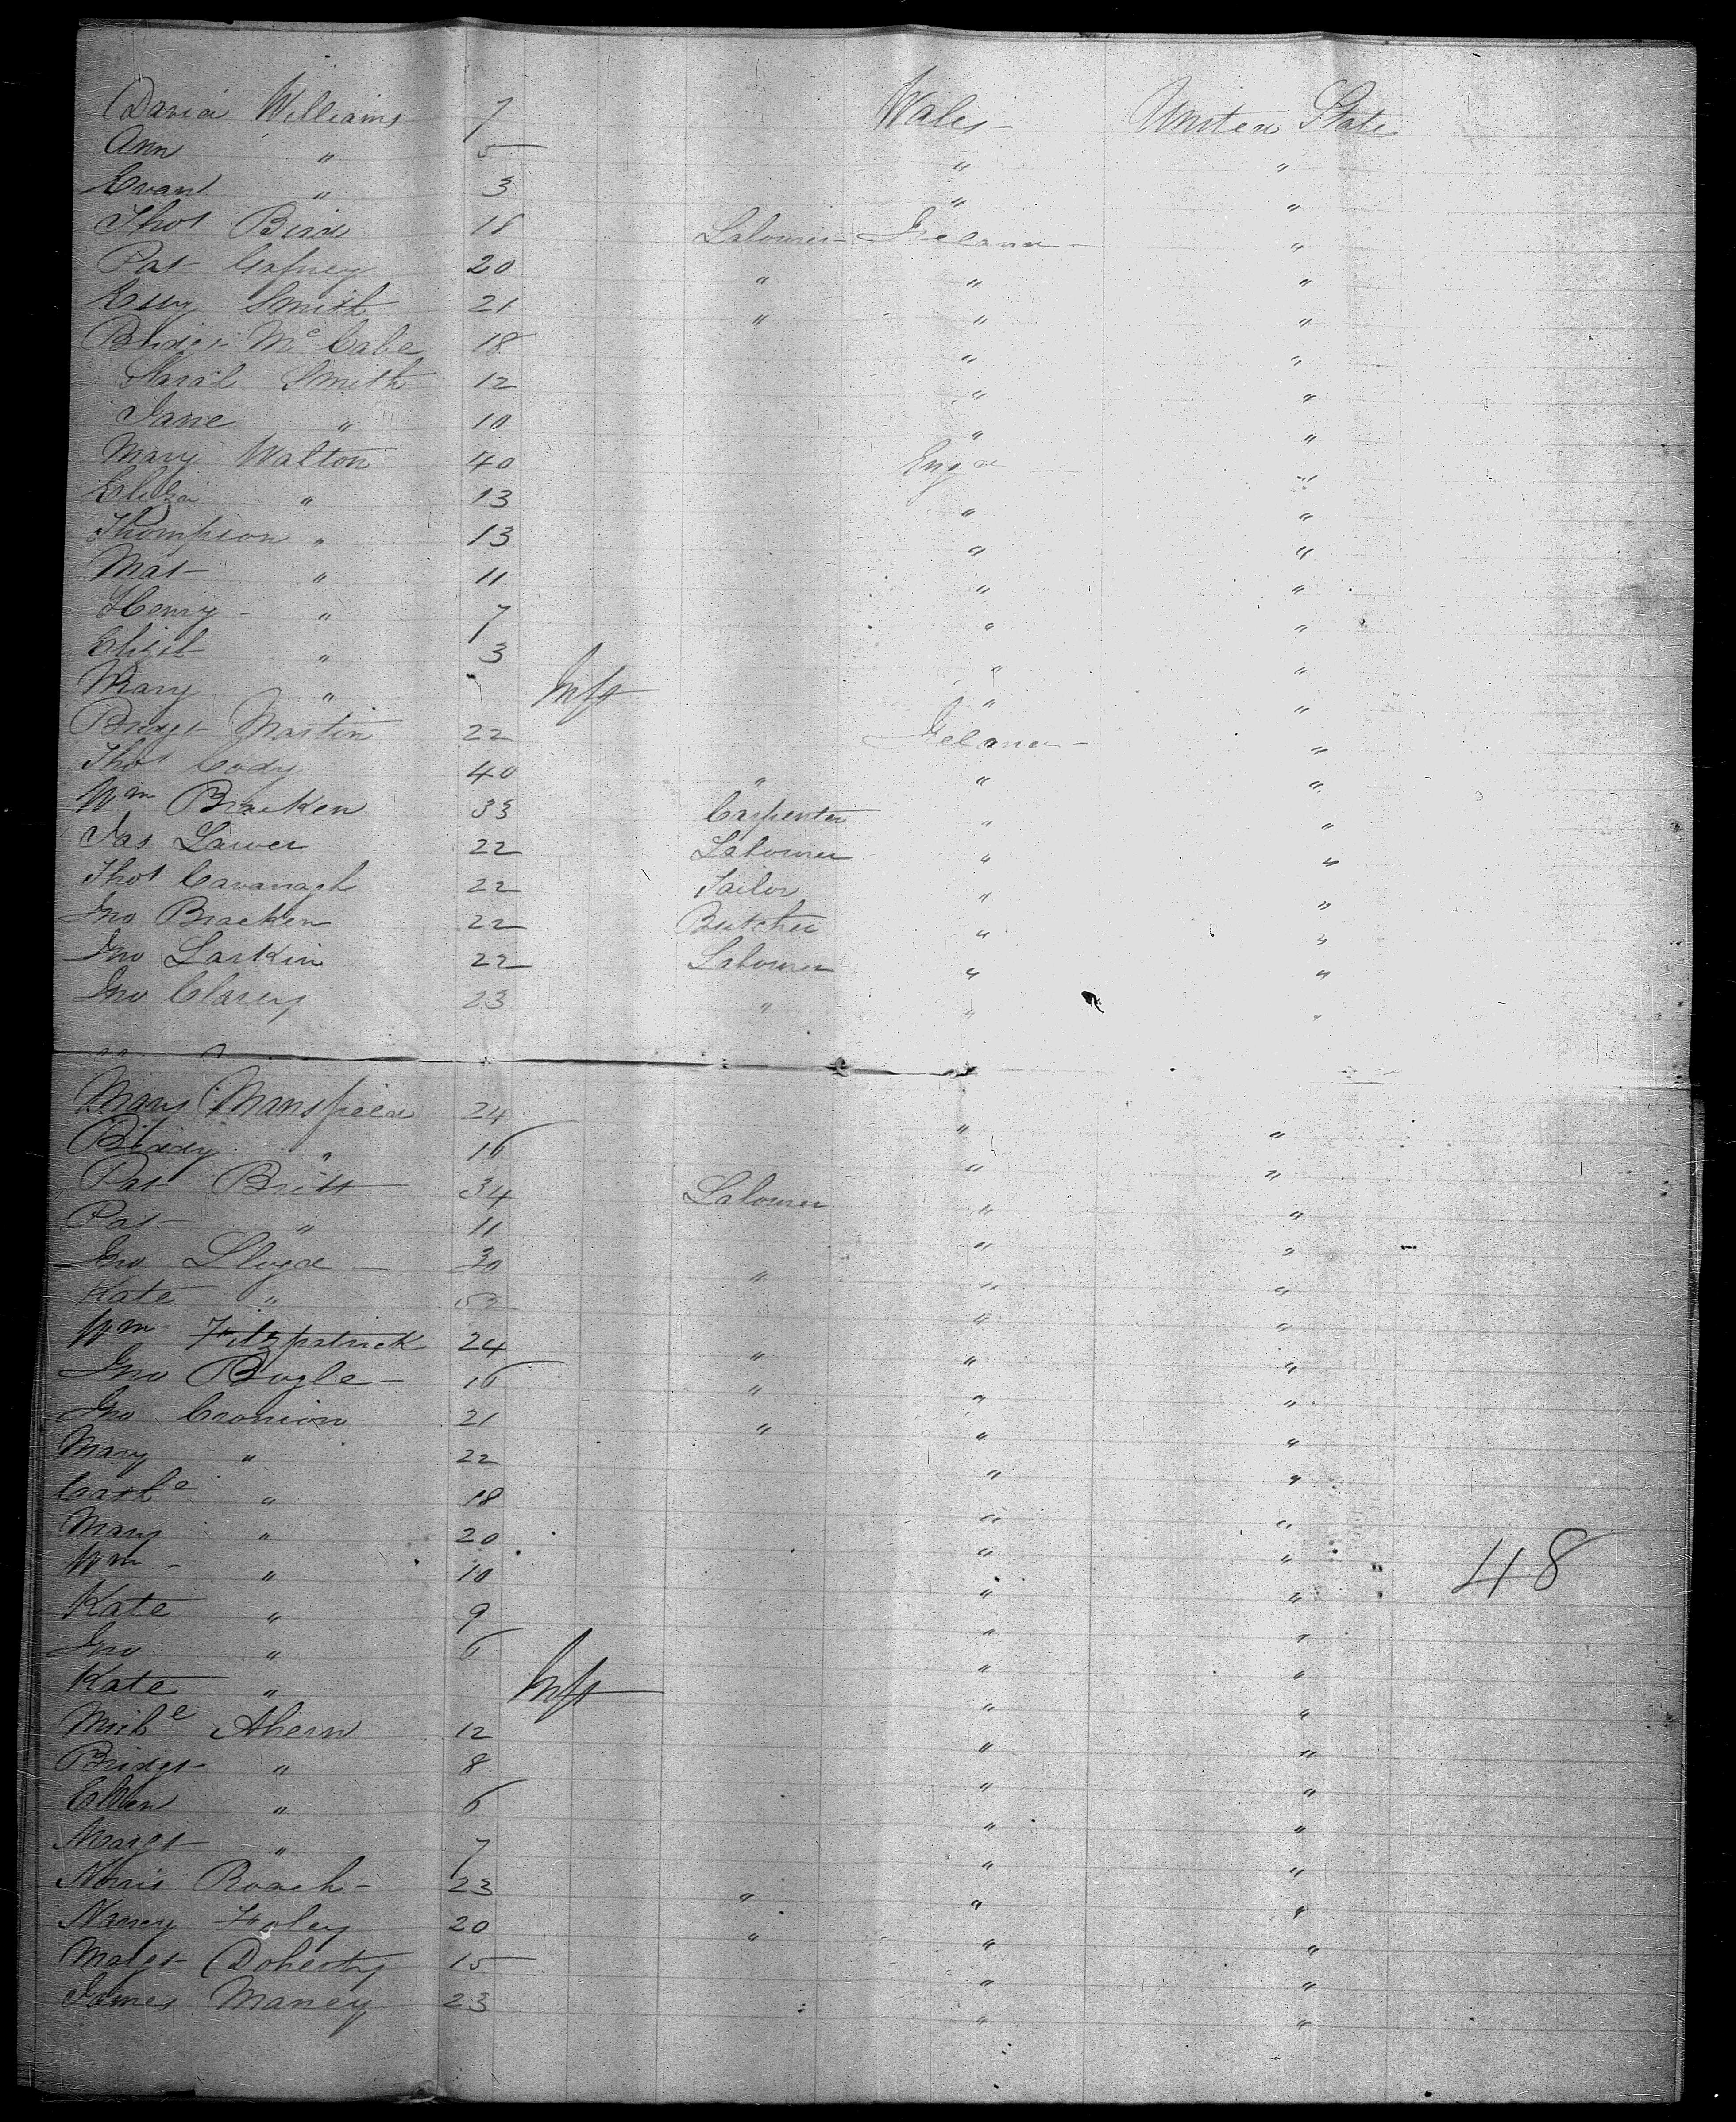 David Williams 7 Wales - United State
Ann " 5 " "
Evan " 3 " "
Thos Bird 18 Labourer - Ireland - "
Pat Gafney 20 " " "
Smith 21 " " "
Bridgt McCabe 18 " "
Sarah Smith 12 " "
Jane " 10 " "
Mary Walton 40 Engd "
Eliza " 13 " "
Thompson " 13 " "
Mat " 11 " "
Henry - " 7 " "
Elizth " 3 " "
Mary " Inft " "
Bridgt Martin 22 Ireland - "
Thos Cody 40 " " "
Wm Bracken 33 Carpenter " "
Jas 22 Labourer " "
Thos Cavanagh 22 Tailor " "
Jno Bracken 22 Butcher " "
Jno Larkin 22 Labourer " "
Jno Clarey 23 " " "
Mary Mansfield 24 " "
Biddy " 16 " "
Pat Britt 34 Labourer " "
Pat " 11 " "
Jno Lloyd - 30 " " "
Kate " " "
Wm Fitzpatrick 24 " " "
Jno Bogle - 16 " " "
Jno Cronion 21 " " "
Mary " 22 " "
Cathe " 18 " "
Mary " 20 " "
Wm - " 10 " " 48
Kate " 9 " "
Jno " 6 " "
Kate " Inft " "
Michl Ahern 12 " "
Bridgt " 8 " "
Ellen " 6 " "
Margt " 7 " "
Norris Roach - 23 " " "
Nancy Foley 20 " " "
Margt Doherty 15 " "
James Maney 23 " "